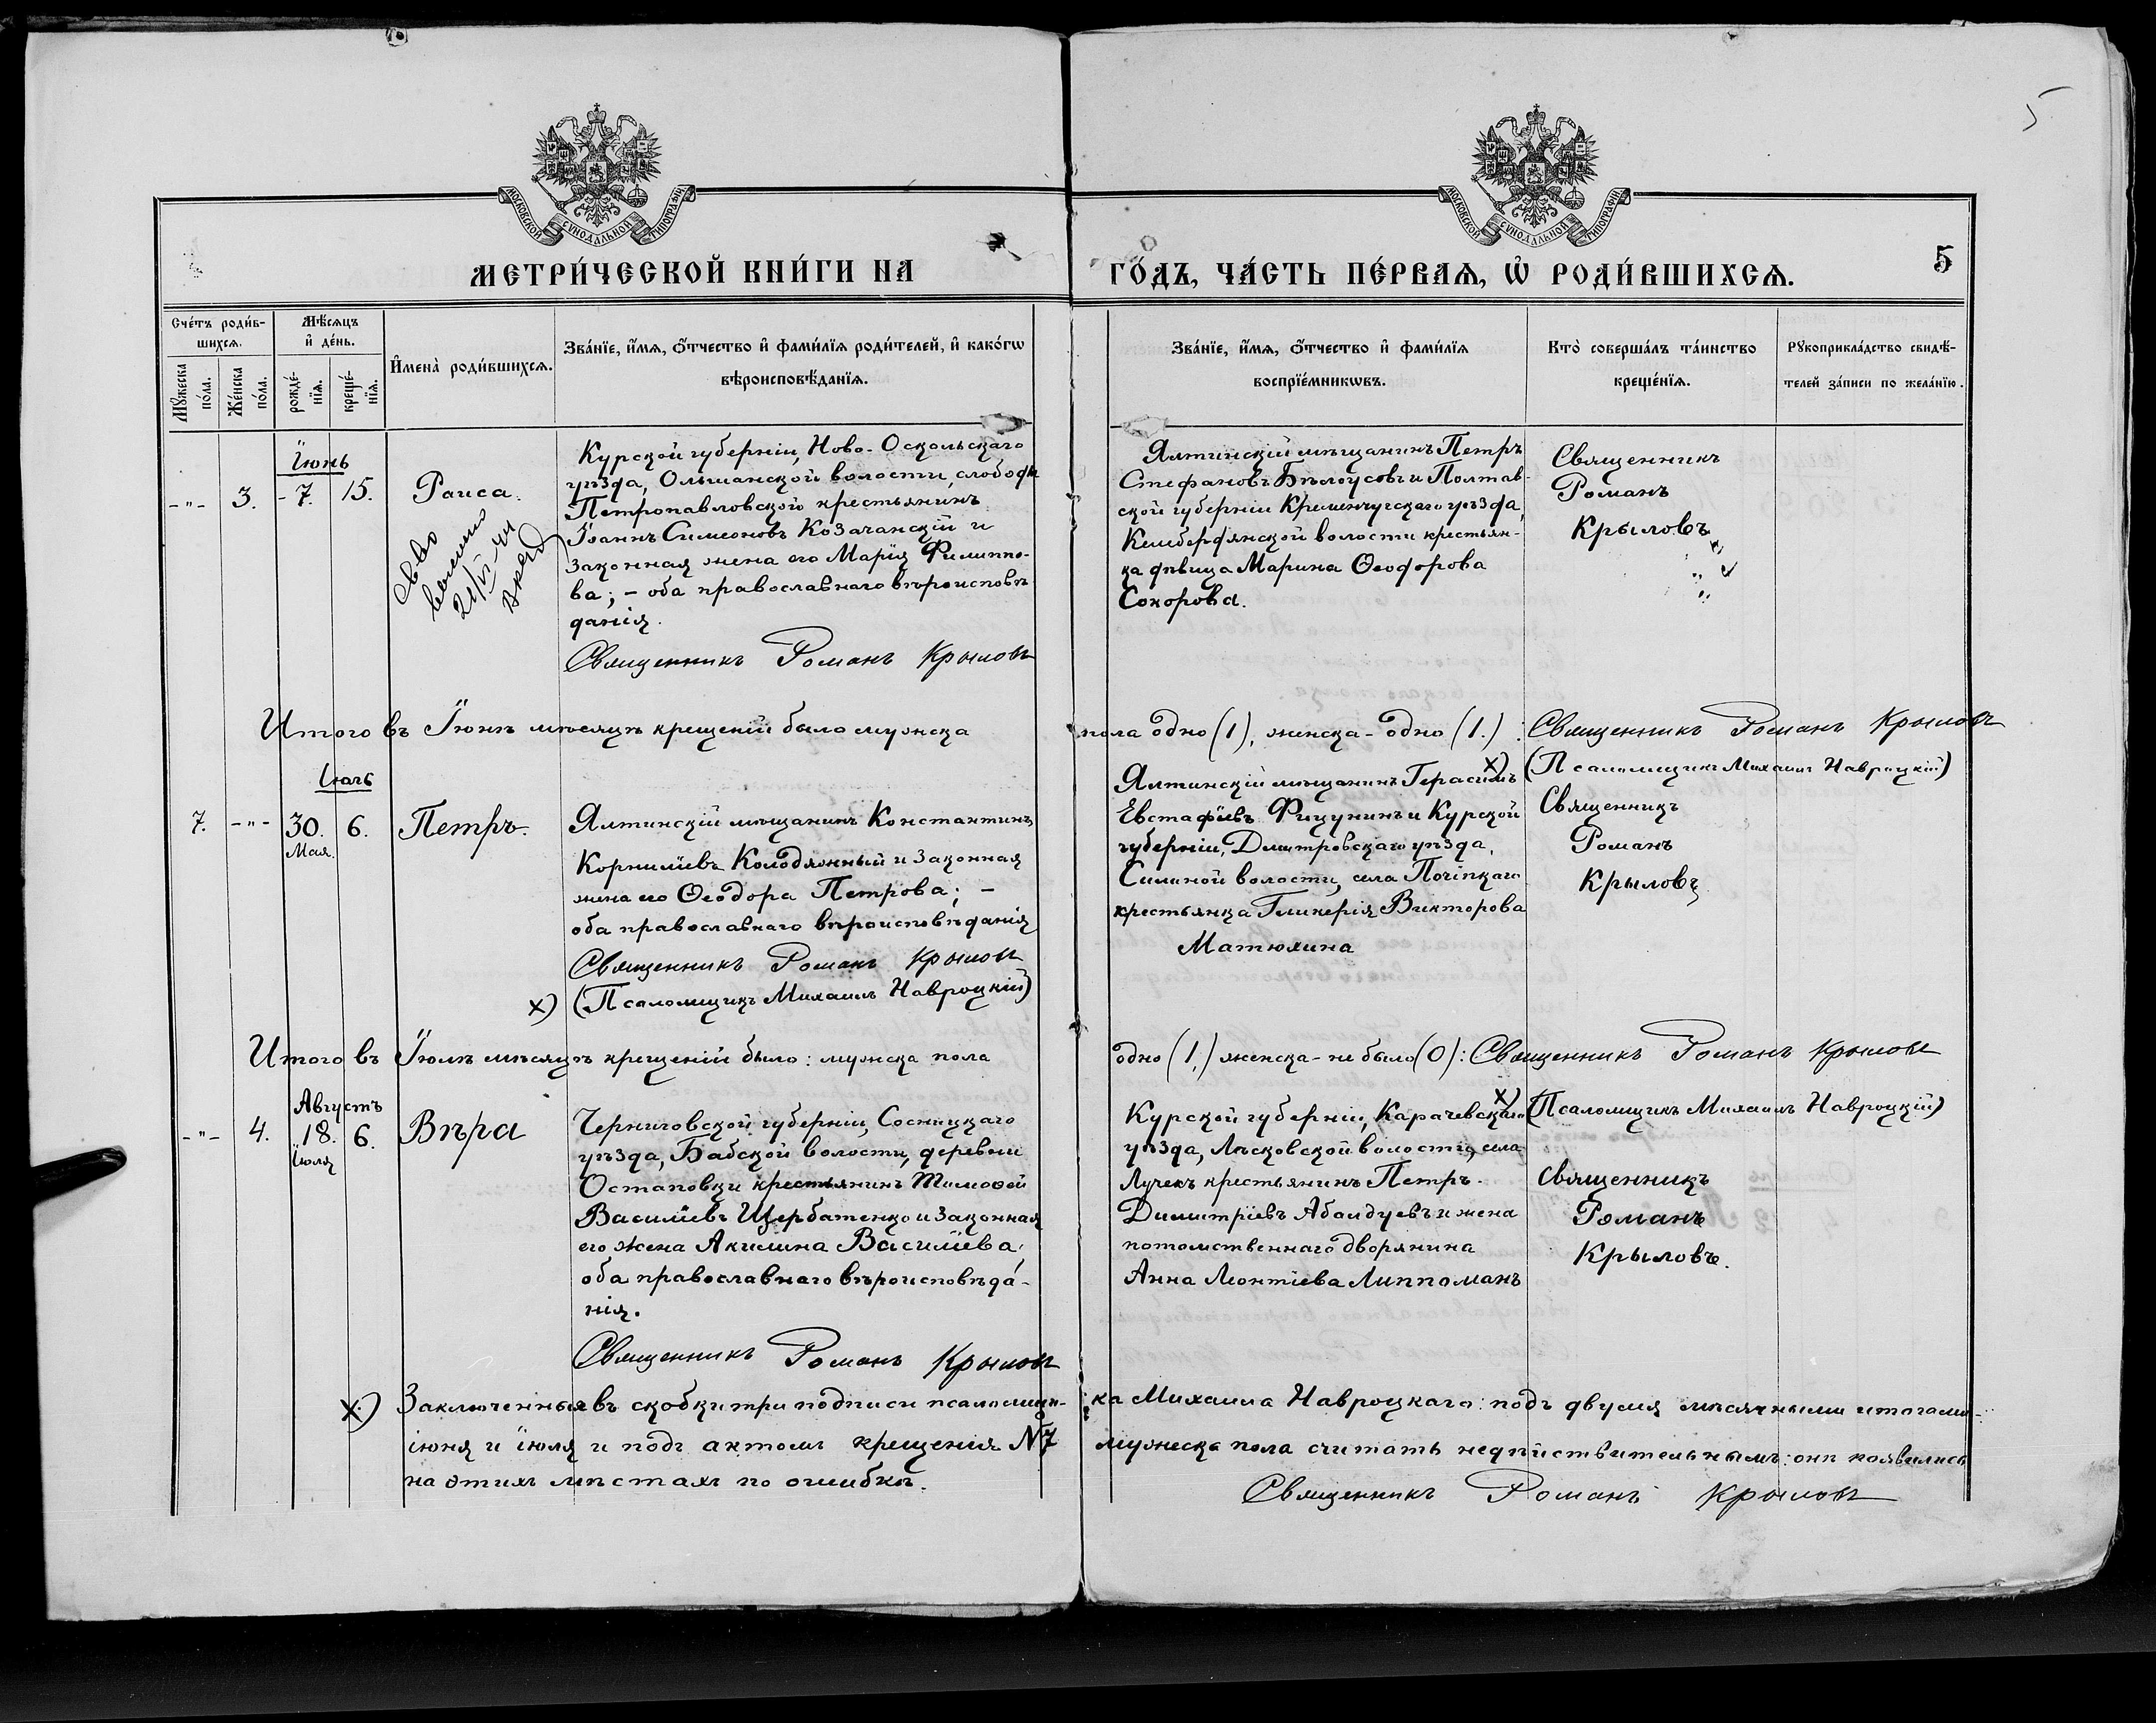 5
МОСКОВСКОЙ СУНОДАЛЬНОЙ ТИПОГРАФІИ
МОСКОВСКОЙ СУНОДАЛЬНОЙ ТИПОГРАФІИ
МЕТРИ́ЧЕСКОЙ КНИ́ГИ НА
ГО́ДЪ, ЧА́СТЬ ПЕ́РВАѦ, Ѡ҆ РОДИ́ВШИХСѦ.
5
Сче́тъ роди́в-
шихсѧ.
Мꙋжеска
по́ла.
Же́нска
по́ла.
Мѣ́сѧцъ
и҆ де́нь.
рожде́-
нїѧ.
креще́-
нїѧ.
И҆мена̀ роди́вшихсѧ.
Зва́нїе, и҆́мѧ, ѻ҆́тчество и҆ фами́лїѧ роди́телей, и҆ како́гѡ
вѣроисповѣ́данїѧ.
Зва́нїе, и҆́мѧ, ѻ҆́тчество и҆ фами́лїѧ
воспрїе́мникѡвъ.
Кто̀ соверша́лъ та́инство
креще́нїѧ.
Рꙋкоприкла́дство свидѣ́-
телей за́писи по жела́нїю.
Їюнь
-"- 3. -7. 15. Раиса.
Курской губерніи, Ново-Оскольскаго
уѣзда, Ольшанской волости, слободы
Петропавловской крестьянинъ
Іоаннъ Симеоновъ Козачанскій и
законная жена его Марія Филиппо-
ва; - оба православнаго вѣроисповѣ
данія.
Священникъ Романъ Крыловъ
Ялтинскій мѣщанинъ Петръ
Стефановъ Бѣлоусовъ и Полтав-
ской губерніи Кременчугскаго уѣзда,
Кемберфянской волости крестьян-
ка дѣвица Марина Ѳеодорова
Сохорова.
Священникъ
Романъ
Крыловъ
Итого въ Їюнѣ мѣсяцѣ крещеній было мужска
пола одно (1), женска - одно (1.) : Священникъ Романъ Крыловъ
х) (Псаломщикъ Михаилъ Навроцкій)
Їюль
7. -"- 30. 6. Петръ.
Мая.
Ялтинскій мѣщанинъ Константинъ
Корниліевъ Колодяжный и законная
жена его Ѳеодора Петрова; -
оба православнаго вѣроисповѣданія
Священникъ Романъ Крыловъ
х) (Псаломщикъ Михаилъ Навроцкій)
Ялтинскій мѣщанинъ Герасимъ
Евстафіевъ Фицунинъ и Курской
губерніи, Дмитровскаго уѣзда,
волости, села
крестьянка Гликерія Викторова
Матюхина
Священникъ
Романъ
Крыловъ
Итого въ Їюлѣ мѣсяцѣ крещеній было: мужска пола
одно (1,) женска - не было (0): Священникъ Романъ Крыловъ
х) (Псаломщикъ Михаилъ Навроцкій)
Августъ
-"- 4. 18. 6. Вѣра
Їюля
Черниговской губерніи, Сосницкаго
уѣзда, Бабской волости, деревни
Остаповки крестьянинъ Тимоѳей
Василіевъ Щербатенко и законная
его жена Акилина Василіева,
оба православнаго вѣроисповѣда-
нія.
Священникъ Романъ Крыловъ
Курской губерніи, Карачевскаго
уѣзда, Лѣсковской волости, села
Лучекъ крестьянинъ Петръ
Димитріевъ Абалдуевъ и жена
потомственнаго дворянина
Анна Леонтіева Липпоманъ
Священникъ
Романъ
Крыловъ.
х) Заключенныя въ скобки три подписи псаломщи-
ка Михаила Навроцкаго: подъ двумя мѣсячными итогами-
іюня и іюля и подъ актомъ крещенія N 7
мужеска пола считать недѣйствительнымъ: онѣ появились
на этихъ мѣстахъ по ошибкѣ.
Священникъ Романъ Крыловъ